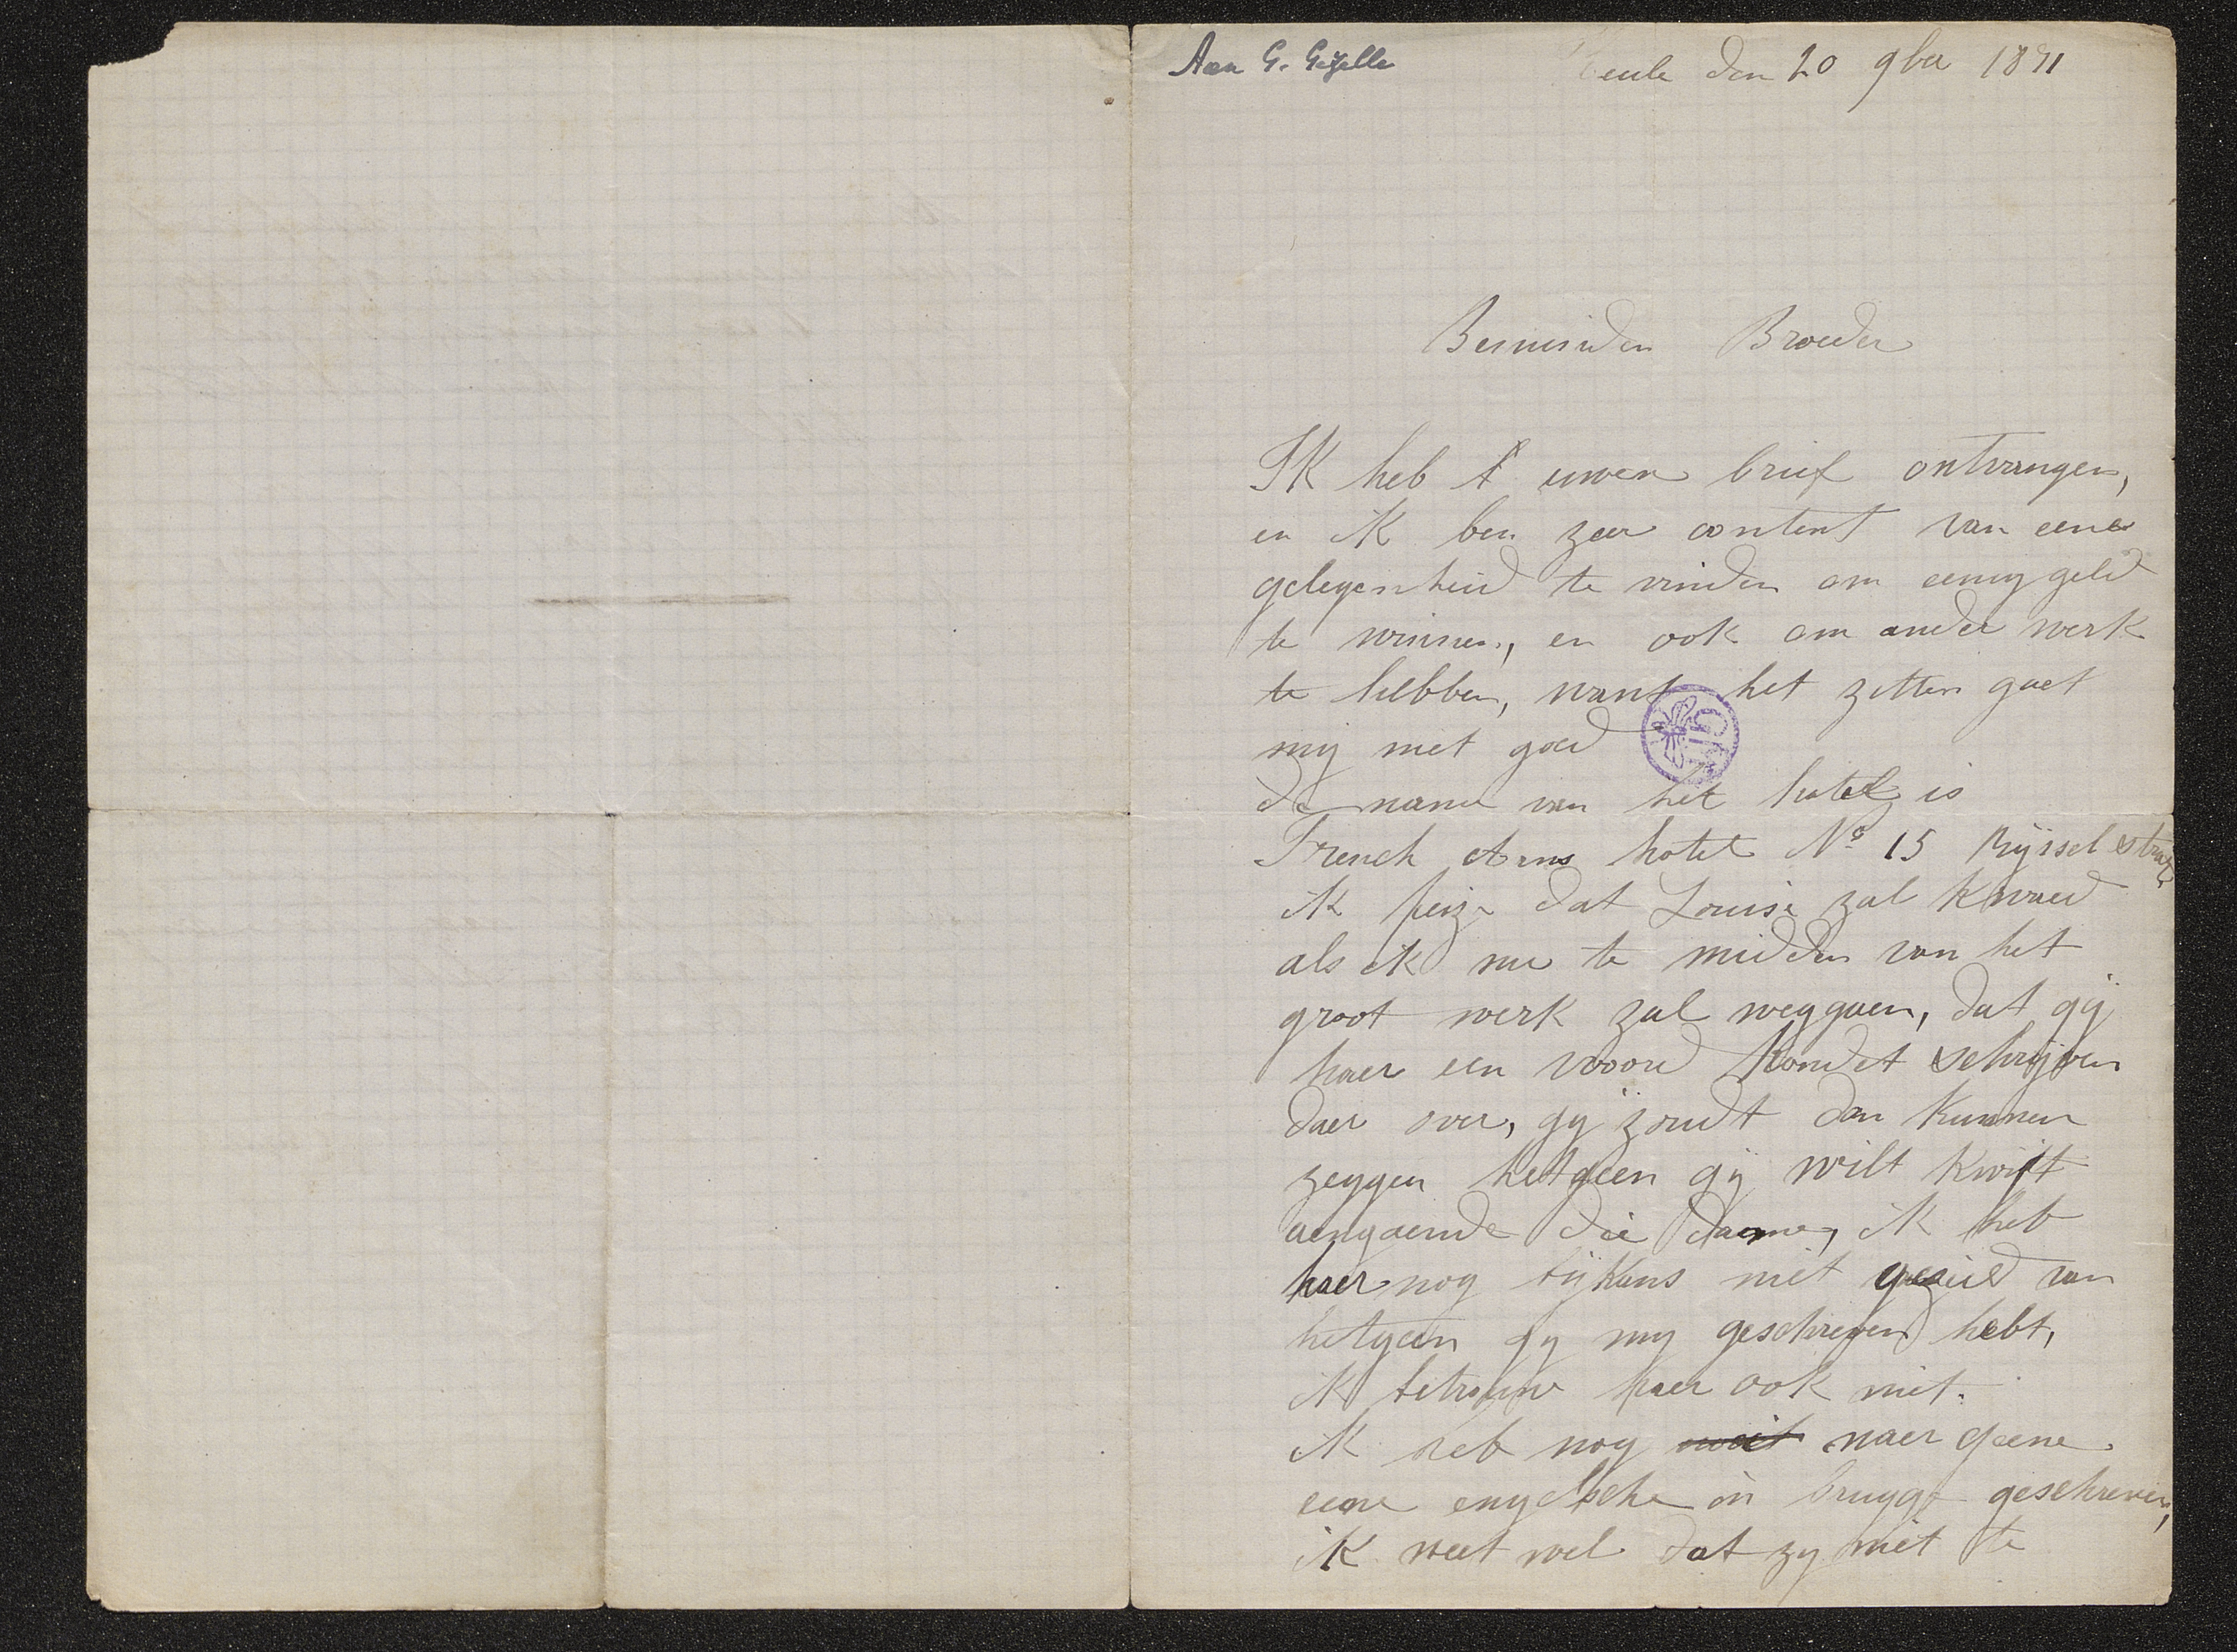 Aan G. Gezelle
Heule den 20 9ber 1871
Beminden Broeder
IK heb t uwen brief ontvangen,
en iK ben zeer content van eene
gelegenheid te vinden om eenig geld
te winnen, en ook om ander werk
te hebben, want het zitten gaet
mij niet goed
de name van het hotel is
French Arms hotel Nº 15 Ryssel straet
iK peize dat Louise zal Kwaed
als iK nu te midden van het
groot werk zal weggaen, dat gij
haer een woord Kondet schrijven
daer over, gij zoudt dan Kunnen
zeggen hetgeen gij wilt Kwijt
aengaende die daeme, iK heb
haer nog bijKans niet gezeid van
hetgeen gy my geschreven hebt,
iK betrouw haer ook niet.
iK heb nog noit naer geene
eene engelsche in brugge geschreven,
iK weet wel dat zy niet te